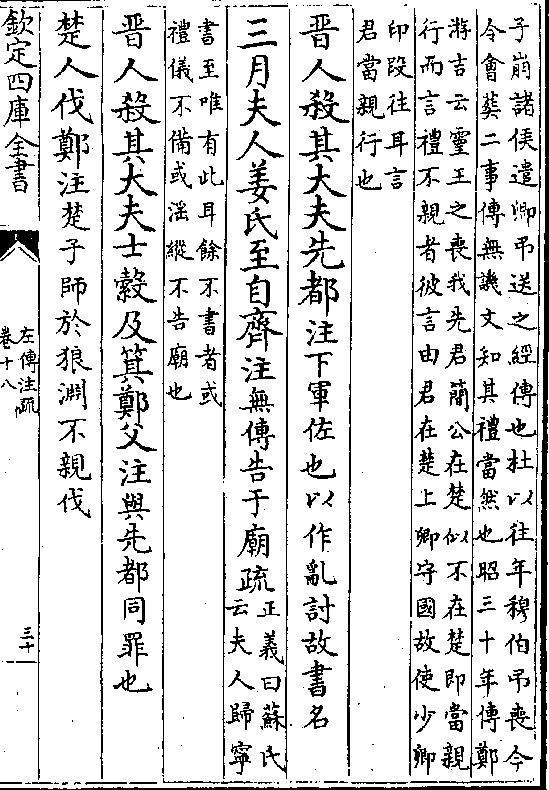 子崩諸侯遣卿弔送之經傳也杜以往年穆伯弔喪今
今會葬二事傳無譏文知其禮當然也昭三十年傳鄭
游吉云靈王之喪我先君簡公在楚似不在楚即當親
行而言禮不親者彼言由君在楚上卿守國故使少卿
印段往耳言
君當親行也
晉人殺其大夫先都注下軍佐也以作亂討故書名
三月夫人姜氏至自齊注無傳告于廟疏正義曰蘇氏
云夫人歸寧
書至唯有此耳餘不書者或
禮儀不備或淫縱不告廟也
晉人殺其大夫士縠及箕鄭父注與先都同罪也
楚人伐鄭注楚子師於狼淵不親伐
欽定四庫全書
左傳注疏
卷十八
三十